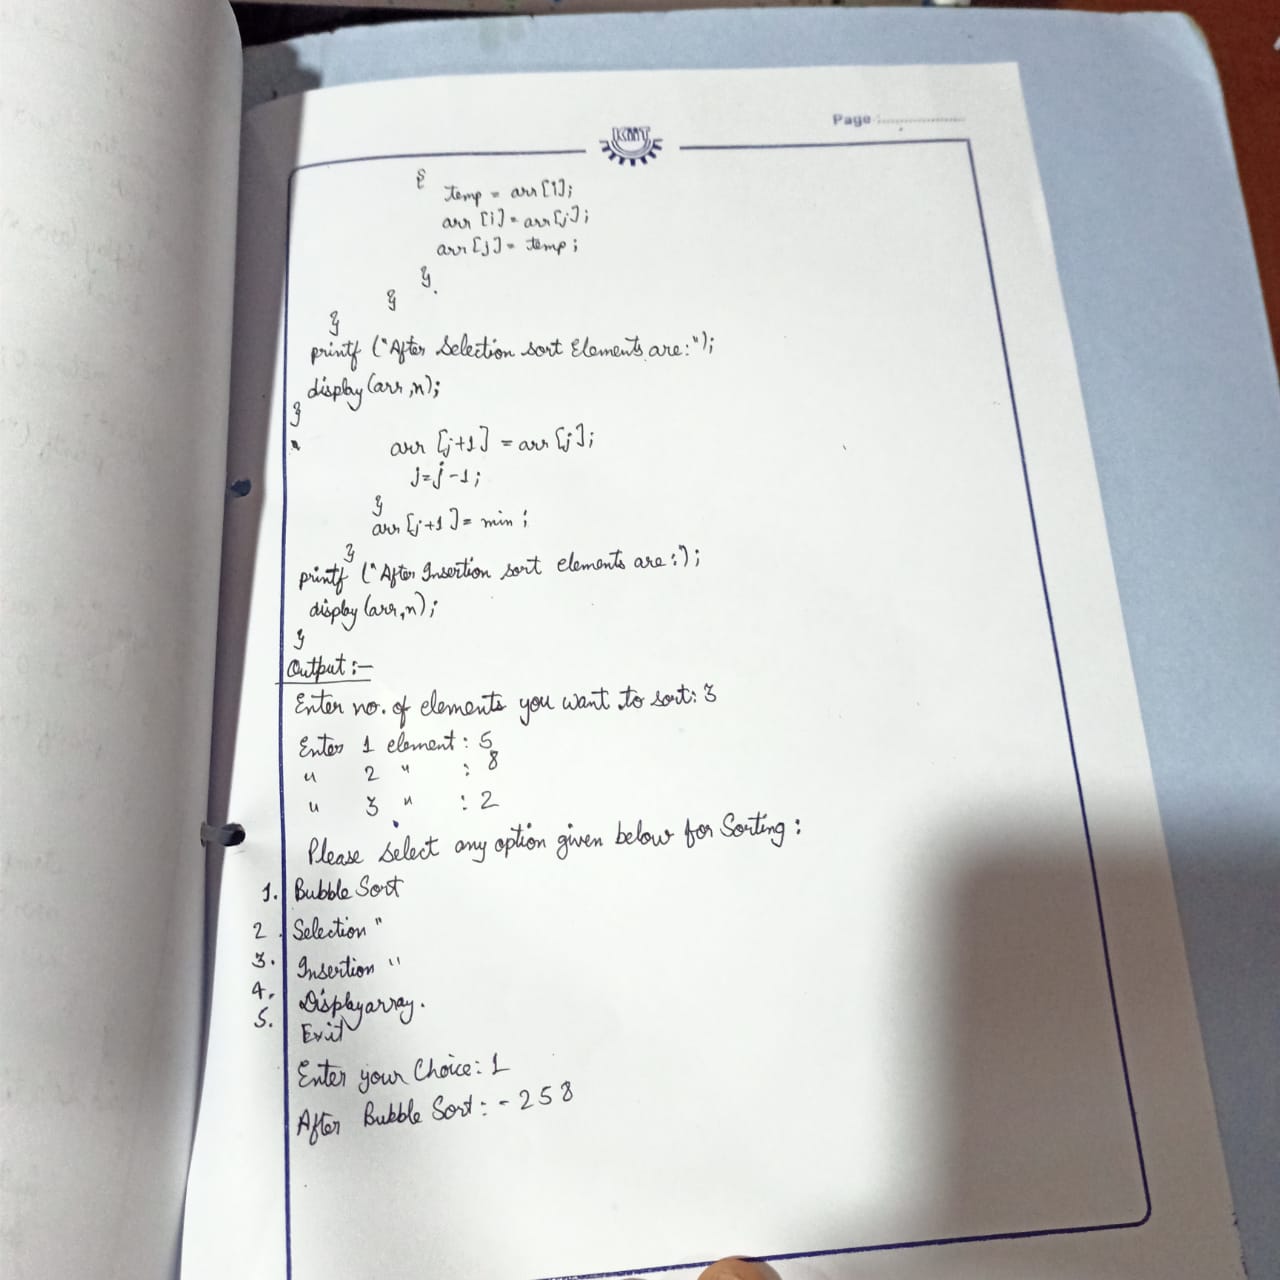 KMT
Page
{
temp = arr[i];
arr[i] = arr[j];
arr[j] = temp;
}.
}
}
printf ("After Selection sort Elements are:");
display(arr,n);
}
arr [j+1] = arr[j];
j=j-1;
}
arr[j+1]= min;
}
printf ("After Insertion sort elements are:");
display(arr,n);
}
Output :-
Enter no. of elements you want to sort: 3
Enter 1 element : 5
" 2 " : 8
" 3 " : 2
Please select any option given below for Sorting :
1. Bubble Sort
2. Selection "
3. Insertion "
4. Displayarray.
5. Exit
Enter your Choice: 1
After Bubble Sort: - 2 5 8